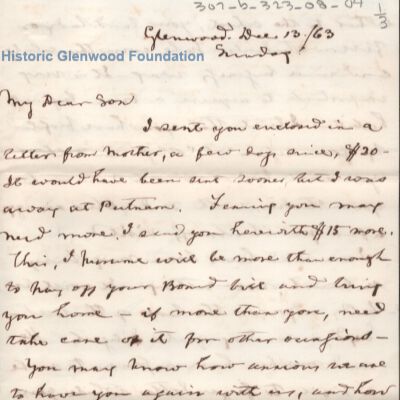 307-b-323-08-04 1/3
Glenwood. Dec 13/63
Sunday
Historic Glenwood Foundation
My Dear Son
I sent you enclosed in a
letter from Mother, a few days since, $20-
It would have been sent sooner, but I was
away at Putnam. Fearing you may
need more, I send you herewith $15 more.
This, I presume will be more than enough
to pay off your Board bill and bring
you home - if more than you, need
take care of it for other occasions -
You may know how anxious we are
to have you again with us, and how